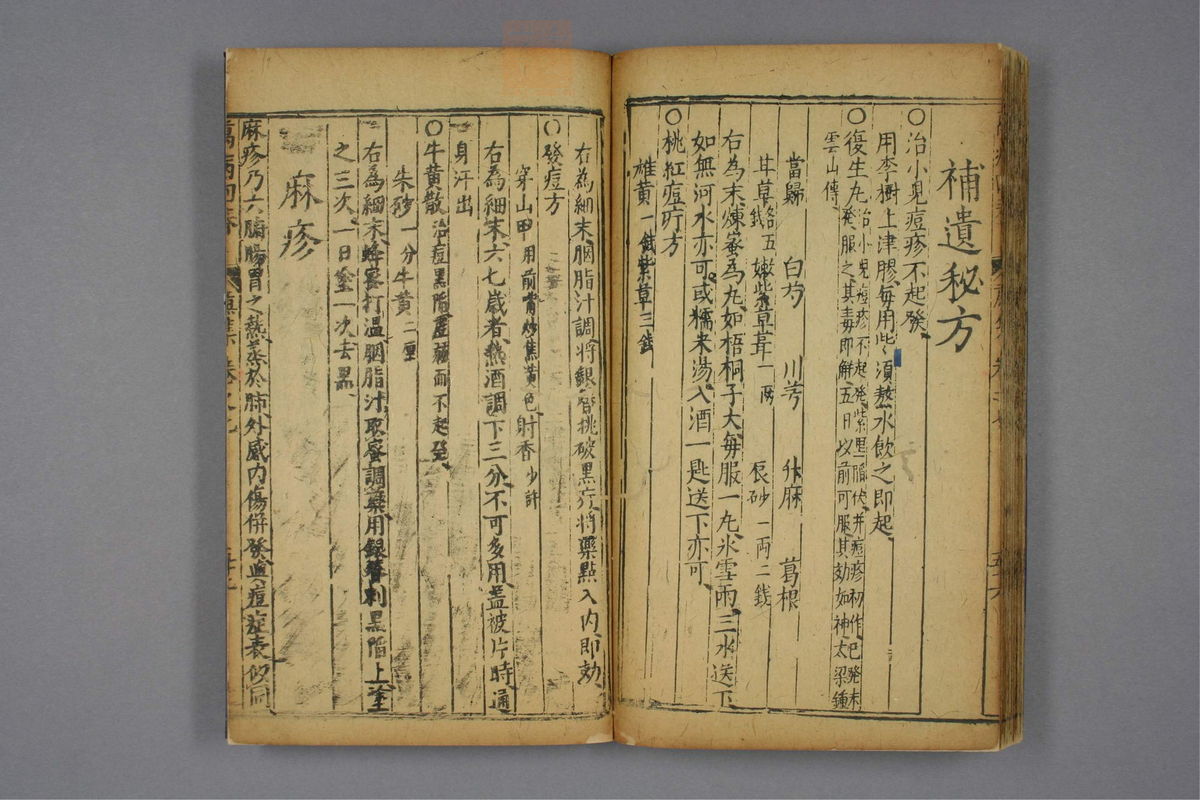 補遺秘方
○治小兒痘疹不起發
用李樹上津膠毎用此須熬水飲之即起
○復生丸治小兒痘疹不起發紫黒陷伏并痘疹初作已發未
發服之其毒即解五日以前可服其効如神太梁鍾
雲山傳
當歸 白芍 川芎 升麻 葛根
甘草各五錢 嫩紫草茸一两 辰砂一両二錢
右為末煉蜜為丸如梧桐子大毎服一丸氷雪雨三水送下
如無河水亦可或糯米湯入酒一匙送下亦可
○桃紅痘疔方
雄黄一錢紫草三錢
右為細末胭脂汁調將銀簪挑破黒疔將藥點入内即効
○發痘方
穿山甲用前觜炒焦黃色射香少許
右為細末六七歳者熱酒調下三分不可多用盖被片時通
身汗出
○牛黃散治痘黒陷虚弱而不起發
朱砂一分牛黃二厘
右為細末蜂蜜打温胭脂汁取蜜調藥用銀簪刺黒陷上塗
之三次一日塗一次去黒
麻疹
麻疹乃六腑腸胃之熱蒸於肺外感内傷併發與痘症表似同
萬病回春